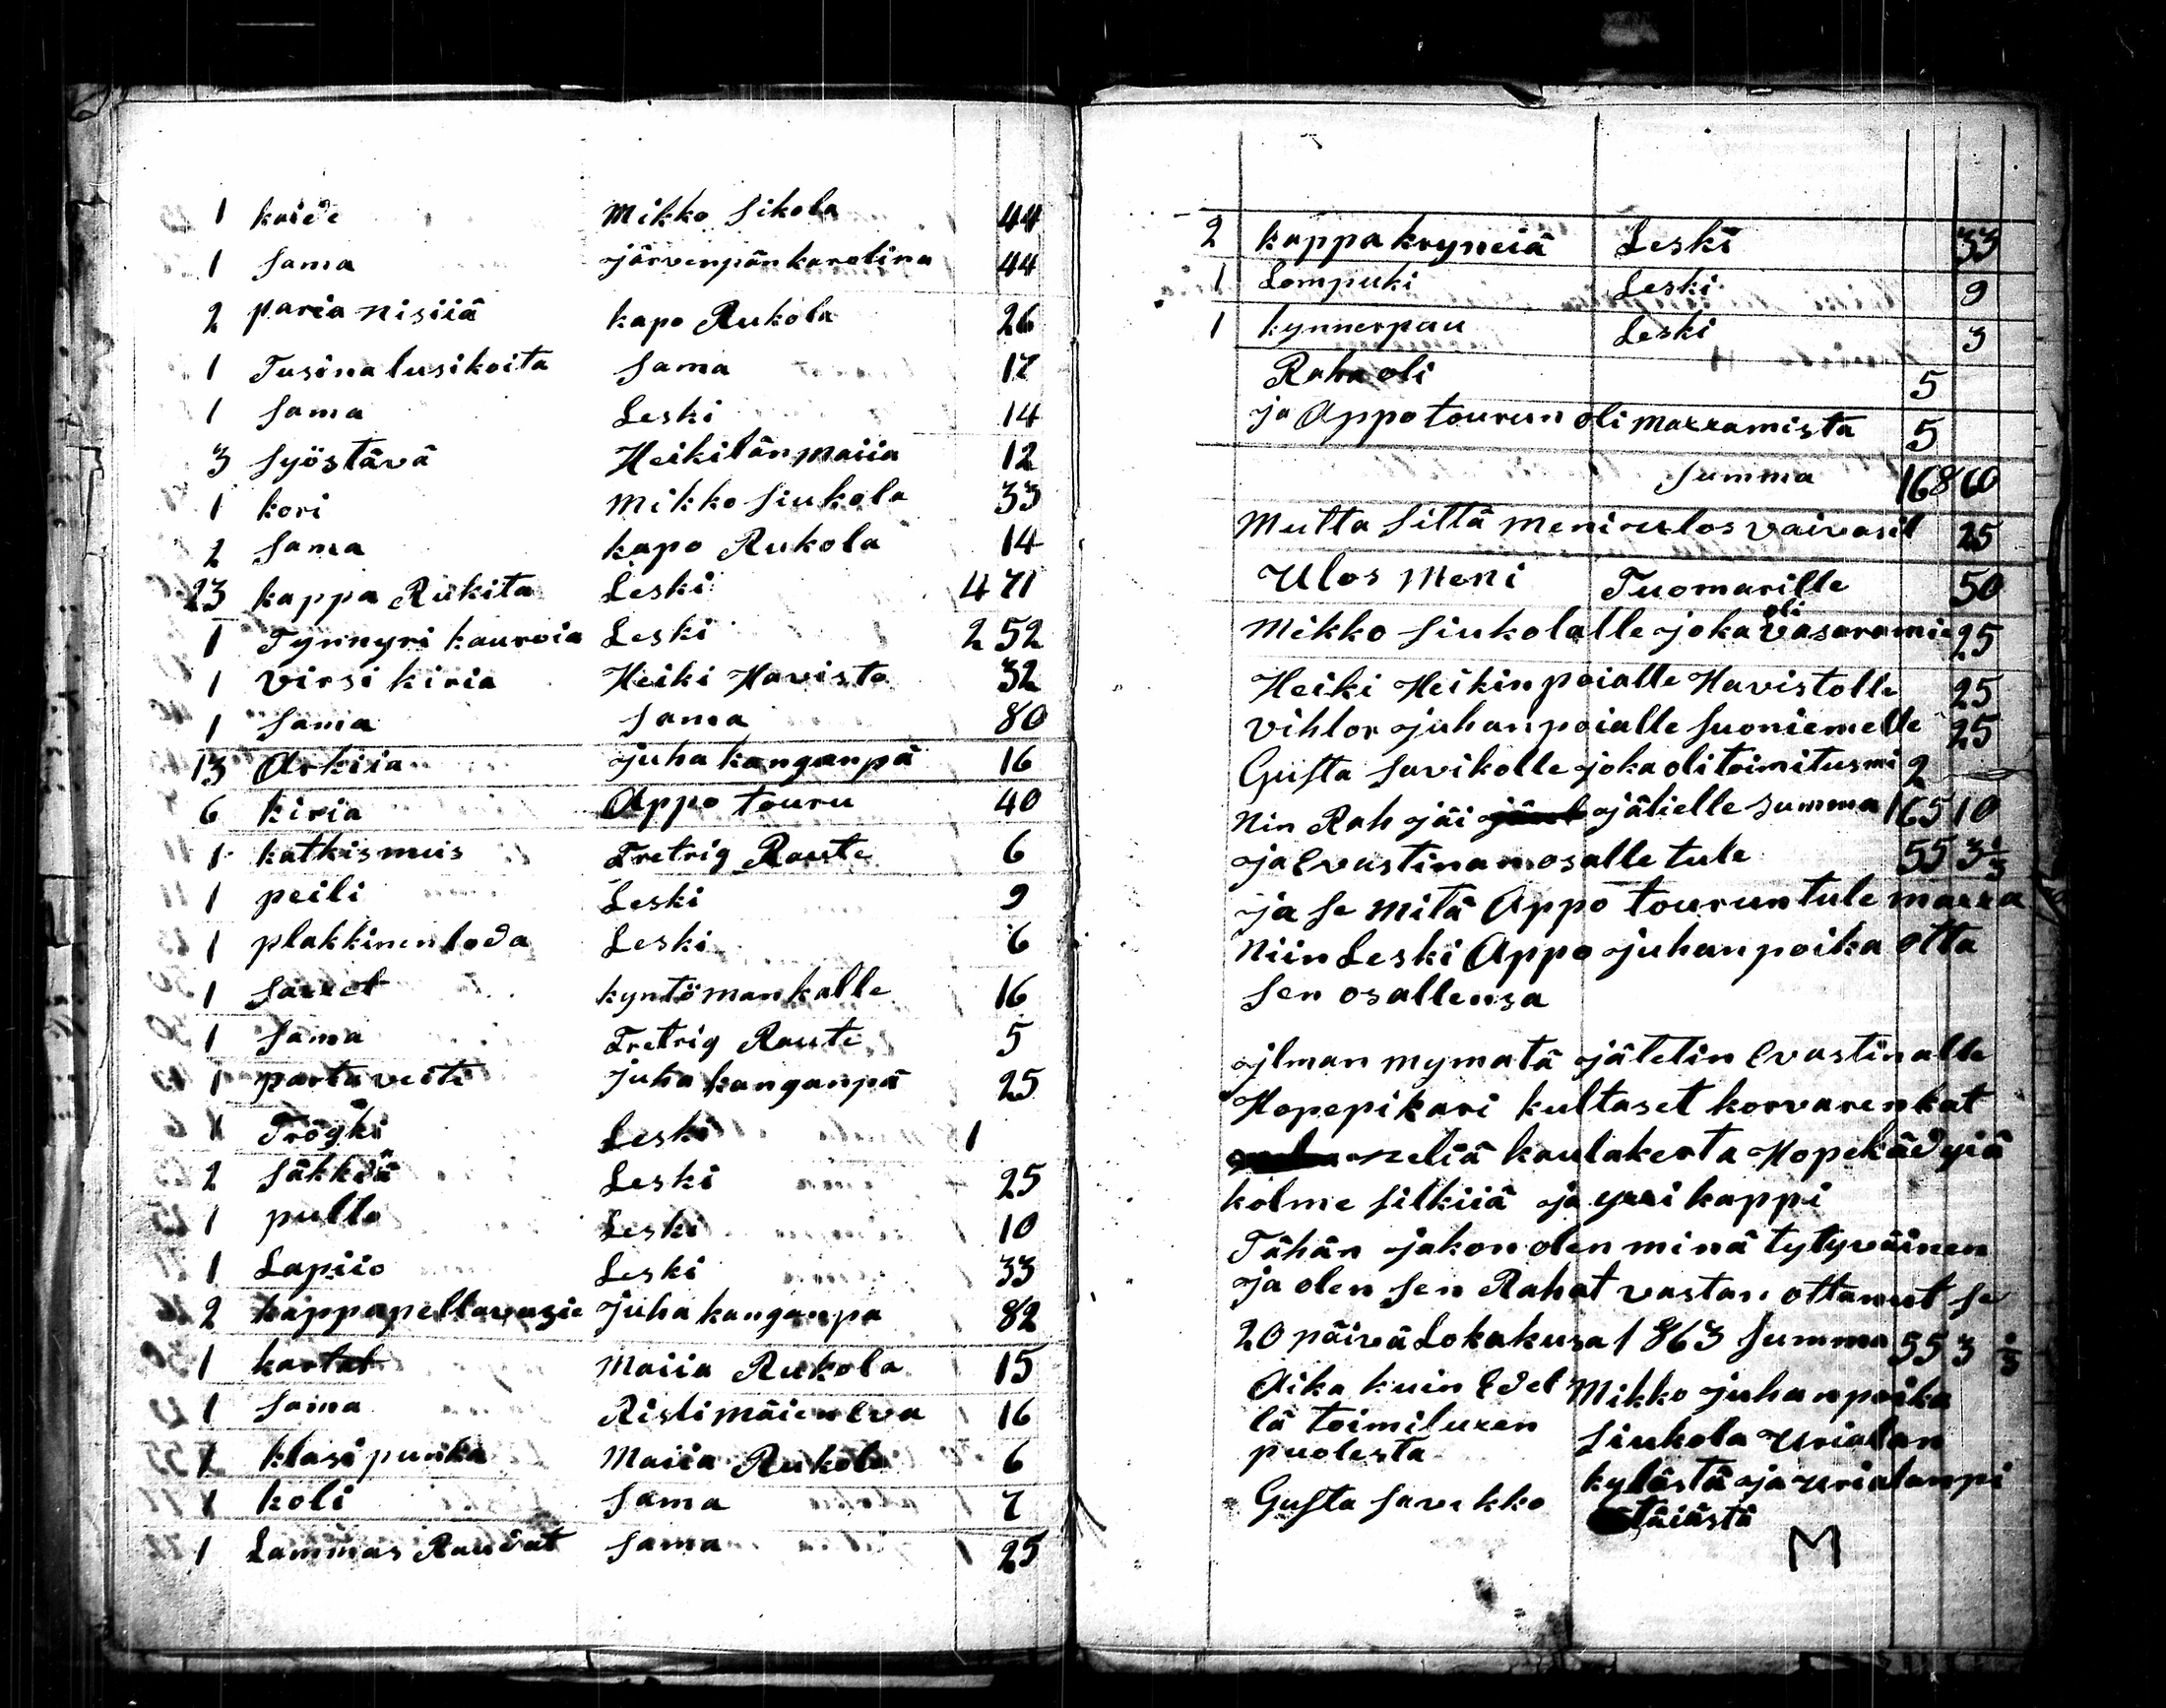 1 kaide Mikko Sikola 44
1 Sama järvenpän karolina 44
2 paria nisiiä kapo Rukola 26
1 Tusina lusikoita Sama 17
1 Sama Leski 14
3 Syöstävä Heikilän maiia 12
1 kori Mikko Siukola 33
2 Sama kapo Rukola 14
23 kappa Rukita Leski 4 71
1 Tynnyri kauroia Leski 2 52
1 virsi kiria Heiki Havisto 32
1 Sama Sama 80
13 Arkiia juha kanganpä 16
6 kiria Appo touru 40
1 katkismus Fretrig Raute 6
1 peili Leski 9
1 plakkinen loda Leski 6
1 Saxet kyntöman kalle 16
1 Sama Fretrig Raute 5
1 parta veiti juha kanganpä 25
1 Tröyki Leski 1
2 Säkkiä Leski 25
1 pullo Leski 10
1 Lapiio Leski 33
2 kappa pellavasie juha kanganpä 82
1 kartat Maiia Rukola 15
1 Sama Ristimäien Eva 16
1 klasi punka Maiia Rukola 6
1 koli Sama 7
1 Lammas Raudat Sama 25
2 kappa kryneiä Leski 33
1 Lompuki Leski 9
1 kynnerpuu Leski 3
Raha oli 5
ja Appo tourun oli maxamista 5
Summa 168 60
Mutta Sittä meni ulos vaivasil 25
Ulos Meni Tuomarille 50
Mikko Siukolalle joka oli vasaramie 25
Heiki Heikinpoialle Havistolle 25
Vihlor juhanpoialle Suoniemelle 25
Gusta Savikolle joka oli toimitusmi 2 —
Nin Rah jäi jälielle Summa 165 10
ja Evastinan osalle tule 55 3 1/3
ja Se mitä Appo tourun tule maxa
Niin Leski Appo juhanpoika otta
Sen osallensa
jlman mymatä jätetin Evastinalle
Hopepikari kultaset korvarenkat
neliä kaulakerta Hopekädyiä
kolme Silkiiä ja yxi kappi
Tähän jakon olen minä tytyväinen
ja olen Sen Rahat vastan ottanut Se
20 päivä Lokakusa 1863 Summa 55 3 1/3
Aika kuin Edel Mikko juhanpoika
lä toimituxen Siukola Urialan
puolesta kylästä ja Urialanpi
Gusta Savikko täiästä
M